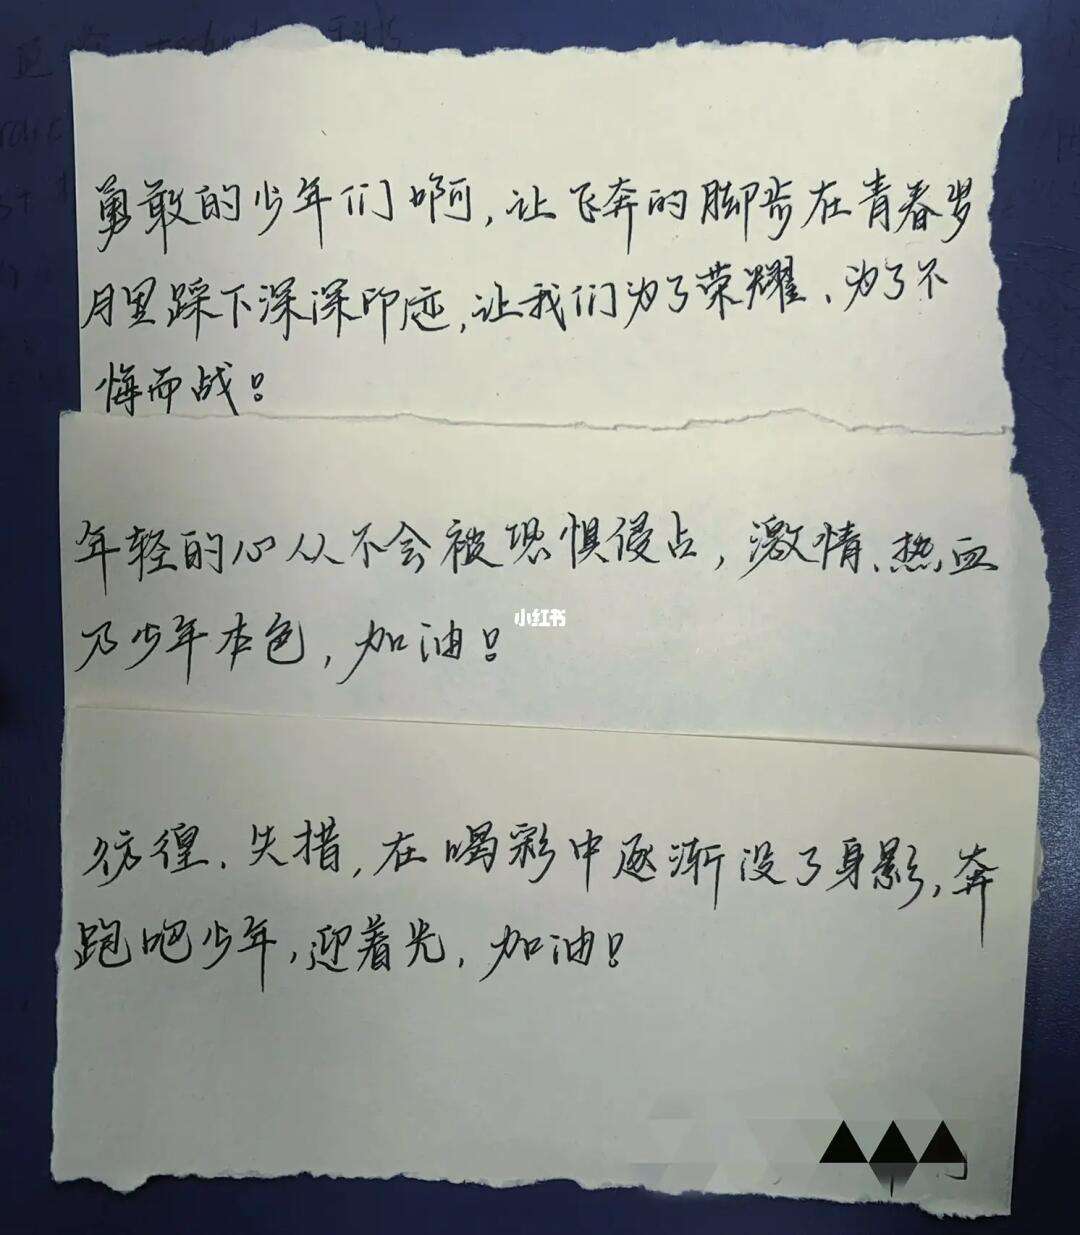 勇敢的少年们啊，让飞奔的脚步在青春岁
月里踩下深深印迹，让我们为了荣耀、为了不
悔而战！
年轻的心从不会被恐惧侵占，激情、热血
乃少年本色，加油！
小红书
彷徨、失措，在喝彩中逐渐没了身影，奔
跑吧少年，迎着光，加油！